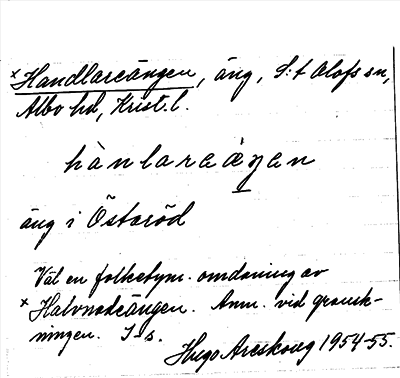 ×Handlareängen, äng, S:t Olofs sn,
Albo hd, Krist. l.
hànlareàŋen
äng i Österöd
Väl en folketym. omdaning av
×Halvnadeängen. Anm. vid gransk-
ningen. I-s.
Hugo Areskoug 1954-55.